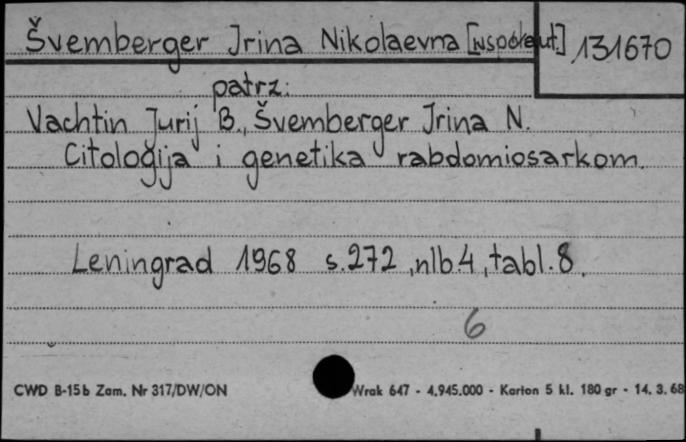 Švemberger Jrina Nikolaevna [współaut.] 131670
patrz:
Vachtin Jurij B., Švemberger Jrina N.
Citologija i genetika rabdomiosarkom.
Leningrad 1968 s.272, nlb.4, tabl.8.
6
CWD B-15b Zam. Nr 317/DW/ON Wrak 647 - 4.945.000 - Karton 5 kl. 180 gr - 14. 3. 68